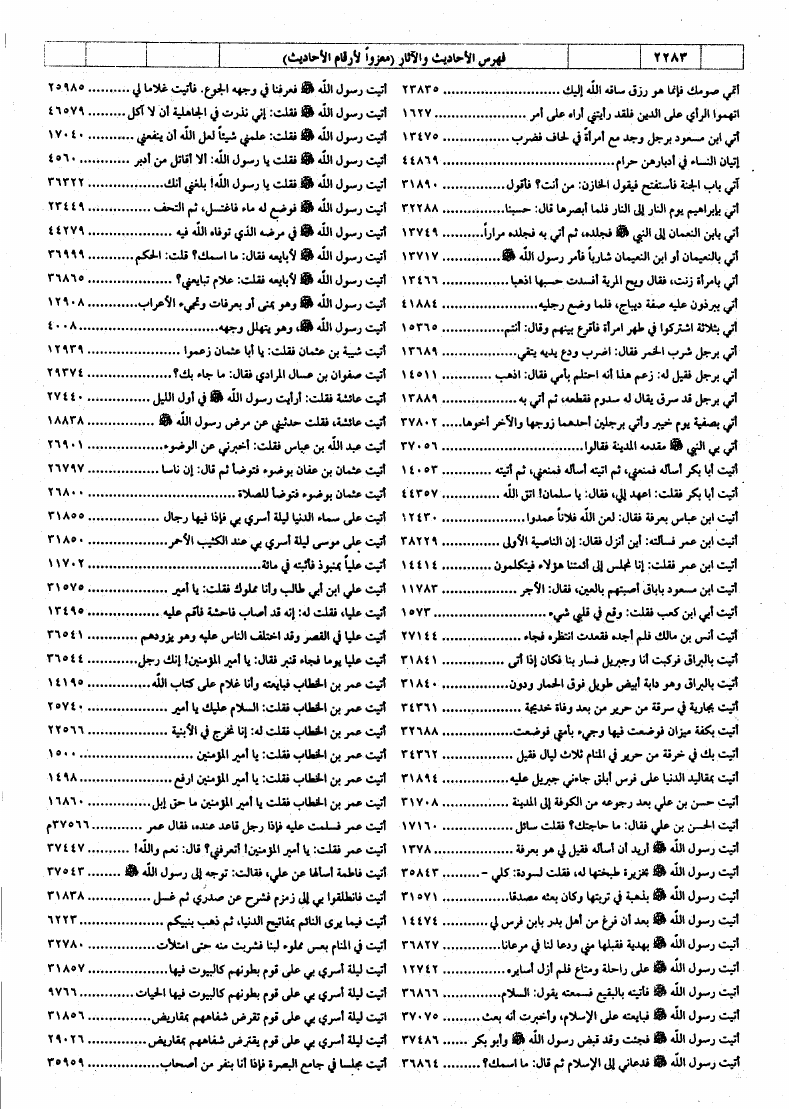 ٢٢٨٣ فهرس الأحاديث والآثار (معزواً لأرقام الأحاديث)
أتمي صومك فإنما هو رزق ساقه الله إليك ... ٢٣٨٣٥
اتهموا الرأي على الدين فلقد رأيتني أراه على أمر ... ١٦٢٧
أتي ابن مسعود برجل وجد مع أمرأة في لحاف فضرب ... ١٣٤٧٥
إتيان النساء في أدبارهن حرام ... ٤٤٨٦٩
آتي باب الجنة فأستفتح فيقول الخازن: من أنت؟ فأقول ... ٣١٨٩٠
أتي بإبراهيم يوم النار إلى النار فلما أبصرها قال: حسبنا ... ٣٢٢٨٨
أتي بابن النعمان إلى النبي ﷺ فجلده، ثم أتي به فجلده مراراً ... ١٣٧٤٩
أتي بالنعيمان أو ابن النعيمان شارباً فأمر رسول الله ﷺ ... ١٣٧١٧
أتي بامرأة زنت، فقال ويح المرية أفسدت حسبها اذهبا ... ١٣٤٦٦
أتي ببرذون عليه صفة ديباج، فلما وضع رجليه ... ٤١٨٨٤
أتي بثلاثة اشتركوا في طهر امرأة فأقرع بينهم وقال: أنتم ... ١٥٣٦٥
أتي برجل شرب الخمر فقال: اضرب ودع يديه يتقي ... ١٣٦٨٩
أتي برجل فقيل له: زعم هذا أنه احتلم بأمي فقال: اذهب ... ١٤٥١١
أتي برجل قد سرق يقال له سدوم فقطعه، ثم أتي به ... ١٣٨٨٩
أتي بصفية يوم خيبر وأتي برجلين أحدهما زوجها والآخر أخوها ... ٣٧٨٠٢
أتي بي النبي ﷺ مقدمه المدينة فقالوا ... ٣٧٠٥٦
أتيت أبا بكر أسأله فمنعني، ثم اتيته أسأله فمنعني، ثم أتيته ... ١٤٠٥٣
أتيت أبا بكر فقلت: اعهد إلي، فقال: يا سلمان! اتق الله ... ٤٤٣٥٧
أتيت ابن عباس بعرفة فقال: لعن الله فلاناً عمدوا ... ١٢٤٣٠
أتيت ابن عمر فسألته: أين أنزل فقال: إن الناصية الأولى ... ٣٨٢٢٩
أتيت ابن عمر فقلت: إنا نجلس إلى أئمتنا هؤلاء فيتكلمون ... ١٤٤١٤
أتيت ابن مسعود باباق أصبتهم بالعين، فقال: الأجر ... ١١٧٨٣
أتيت أبي ابن كعب فقلت: وقع في قلبي شيء ... ١٥٧٣
أتيت أنس بن مالك فلم أجده فقعدت انتظره فجاء ... ٢٧١٤٤
أتيت بالبراق فركبت أنا وجبريل فسار بنا فكان إذا أتى ... ٣١٨٤١
أتيت بالبراق وهو دابة أبيض طويل فوق الحمار ودون ... ٣١٨٤٠
أتيت بجارية في سرقة من حرير من بعد وفاة خديجة ... ٣٤٣٦١
أتيت بكفة ميزان فوضعت فيها وجيء بأمتي فوضعت ... ٣٢٦٨٨
أتيت بك في خرقة من حرير في المنام ثلاث ليال فقيل ... ٣٤٣٦٢
أتيت بمقاليد الدنيا على فرس أبلق جاءني جبريل عليه ... ٣١٨٩٤
أتيت حسن بن علي بعد رجوعه من الكوفة إلى المدينة ... ٣١٧٠٨
أتيت الحسن بن علي فقال: ما حاجتك؟ فقلت سائل ... ١٧١٦٠
أتيت رسول الله ﷺ أريد أن أسأله فقيل لي هو بعرفة ... ١٣٧٨
أتيت رسول الله ﷺ بخزيرة طبختها له، فقلت لسودة: كلي - ... ٣٥٨٤٣
أتيت رسول الله ﷺ بذهبة في تربتها وكان بعثه مصدقا ... ٣١٥٧١
أتيت رسول الله ﷺ بعد أن فرغ من أهل بدر بابن فرس لي ... ١٤٤٧٤
أتيت رسول الله ﷺ بهدية فقبلها مني ودعا لنا في مرعانا ... ٣٦٨٢٧
أتيت رسول الله ﷺ على راحلة ومتاع فلم أزل أسايره ... ١٢٧٤٢
أتيت رسول الله ﷺ فأتيته بالبقيع فسمعته يقول: السلام ... ٣٦٨٦٦
أتيت رسول الله ﷺ فبايعته على الإسلام، وأخبرت أنه بعث ... ٣٧٠٧٥
أتيت رسول الله ﷺ فجئت وقد قبض رسول الله ﷺ وأبو بكر ... ٣٧٤٨٦
أتيت رسول الله ﷺ فدعاني إلى الإسلام ثم قال: ما اسمك؟ ... ٣٦٨٦٤
أتيت رسول الله ﷺ فعرفنا في وجهه الجوع. فأتيت غلاما لي ... ٢٥٩٨٥
أتيت رسول الله ﷺ فقلت: إني نذرت في الجاهلية أن لا آكل ... ٤٦٥٧٩
أتيت رسول الله ﷺ فقلت: علمني شيئاً لعل الله أن ينفعني ... ١٧٠٤٠
أتيت رسول الله ﷺ فقلت يا رسول الله: ألا أقاتل من أدبر ... ٤٥٦٠
أتيت رسول الله ﷺ فقلت يا رسول الله! بلغني أنك ... ٣٦٣٢٢
أتيت رسول الله ﷺ فوضع له ماء فاغتسل، ثم التحف ... ٢٣٤٤٩
أتيت رسول الله ﷺ في مرضه الذي توفاه الله فيه ... ٤٤٢٧٩
أتيت رسول الله ﷺ لأبايعه فقال: ما اسمك؟ قلت: الحكم ... ٣٦٩٩٩
أتيت رسول الله ﷺ لأبايعه فقلت: علام تبايعني؟ ... ٣٦٨٦٥
أتيت رسول الله ﷺ وهو بمنى أو بعرفات وتجيء الأعراب ... ١٢٩٠٨
أتيت رسول الله ﷺ، وهو يتهلل وجهه ... ٤٠٠٨
أتيت شيبة بن عثمان فقلت: يا أبا عثمان زعموا ... ١٢٩٣٩
أتيت صفوان بن عسال المرادي فقال: ما جاء بك؟ ... ٢٩٣٧٤
أتيت عائشة فقلت: أرأيت رسول الله ﷺ في أول الليل ... ٢٧٤٤٠
أتيت عائشة، فقلت حدثيني عن مرض رسول الله ﷺ ... ١٨٨٣٨
أتيت عبد الله بن عباس فقلت: أخبرني عن الوضوء ... ٢٦٩٠١
أتيت عثمان بن عفان بوضوء فتوضأ ثم قال: إن ناسا ... ٢٦٧٩٧
أتيت عثمان بوضوء فتوضأ للصلاة ... ٢٦٨٠٠
أتيت على سماء الدنيا ليلة أسري بي فإذا فيها رجال ... ٣١٨٥٥
أتيت على موسى ليلة أسري بي عند الكثيب الأحمر ... ٣١٨٥٠
أتيت علياً بمنبوذ فأثبته في مائة ... ١١٧٠٢
أتيت علي ابن أبي طالب وأنا مملوك فقلت: يا أمير ... ٣١٥٧٥
أتيت عليا، فقلت له: إنه قد أصاب فاحشة فأقم عليه ... ١٣٤٩٥
أتيت عليا في القصر وقد اختلف الناس عليه وهو يزودهم ... ٣٦٥٤١
أتيت عليا يوما فجاء قنبر فقال: يا أمير المؤمنين! إنك رجل ... ٣٦٥٤٤
أتيت عمر بن الخطاب فبايعته وأنا غلام على كتاب الله ... ١٤١٩٥
أتيت عمر بن الخطاب فقلت: السلام عليك يا أمير ... ٢٥٧٤٠
أتيت عمر بن الخطاب فقلت له: إنا نخرج في الأبنية ... ٢٢٥٦٦
أتيت عمر بن الخطاب فقلت: يا أمير المؤمنين ... ١٥٠٠
أتيت عمر بن الخطاب فقلت: يا أمير المؤمنين ارفع ... ١٤٩٨
أتيت عمر بن الخطاب فقلت يا أمير المؤمنين ما حق إبل ... ١٦٨٦٠
أتيت عمر فسلمت عليه فإذا رجل قاعد عنده، فقال عمر ... ٣٧٥٦٦م
أتيت عمر فقلت: يا أمير المؤمنين! أتعرفني؟ قال: نعم والله! ... ٣٧٤٤٧
أتيت فاطمة أسألها عن علي، فقالت: توجه إلى رسول الله ﷺ ... ٣٧٥٤٣
أتيت فانطلقوا بي إلى زمزم فشرح عن صدري ثم غسل ... ٣١٨٣٨
أتيت فيما يرى النائم بمفاتيح الدنيا، ثم ذهب بنبيكم ... ٦٢٢٣
أتيت في المنام بعس مملوء لبنا فشربت منه حتى امتلأت ... ٣٢٧٨٠
أتيت ليلة أسري بي على قوم بطونهم كالبيوت فيها ... ٣١٨٥٧
أتيت ليلة أسري بي على قوم بطونهم كالبيوت فيها الحيات ... ٩٧٦٦
أتيت ليلة أسري بي على قوم تقرض شفاههم بمقاريض ... ٣١٨٥٦
أتيت ليلة أسري بي على قوم يقترض شفاههم بمقاريض ... ٢٩٠٢٦
أتيت مجلسا في جامع البصرة فإذا أنا بنفر من أصحاب ... ٣٥٩٥٩